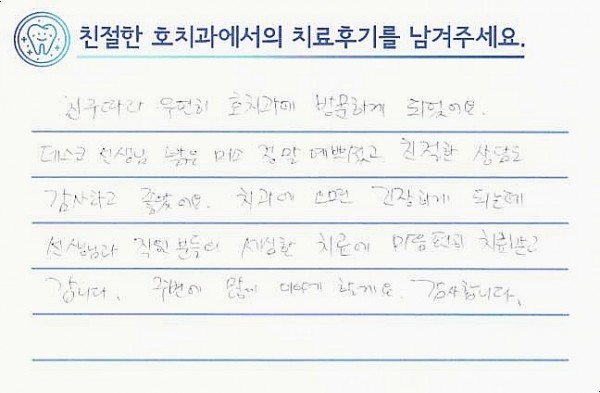 친절한 호치과에서의 치료후기를 남겨주세요.
친구따라 우연히 호치과에 방문하게 되었어요.
데스크 선생님 밝은 미소 정말 예쁘셨고 친절한 상담도
감사하고 좋았어요. 치과에 오면 긴장하게 되는데
선생님과 직원분들의 세심한 치료에 마음 편히 치료받고
갑니다. 주변에 많이 이야기 할게요. 감사합니다.